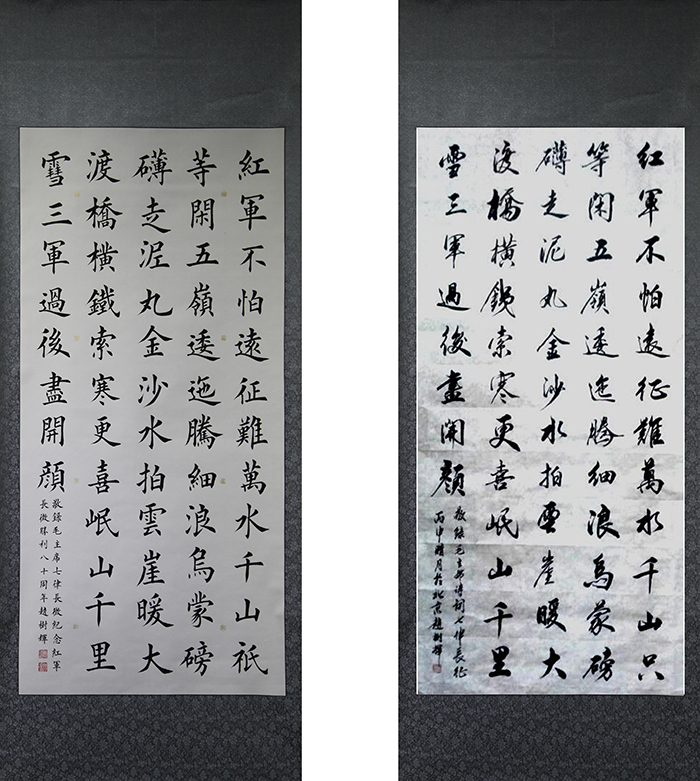 紅軍不怕遠征難萬水千山祇
等閑五嶺逶迤騰細浪烏蒙磅
礴走泥丸金沙水拍雲崖暖大
渡橋橫鐵索寒更喜岷山千里
雪三軍過後盡開顏
敬錄毛主席七律長徵紀念紅軍
長徵勝利八十周年趙樹輝
紅軍不怕遠征難萬水千山只
等閑五嶺逶迤騰細浪烏蒙磅
礴走泥丸金沙水拍雲崖暖大
渡橋橫鐵索寒更喜岷山千里
雪三軍過後盡開顏
敬錄毛主席詩詞七律長征
丙申臘月於北京趙樹輝